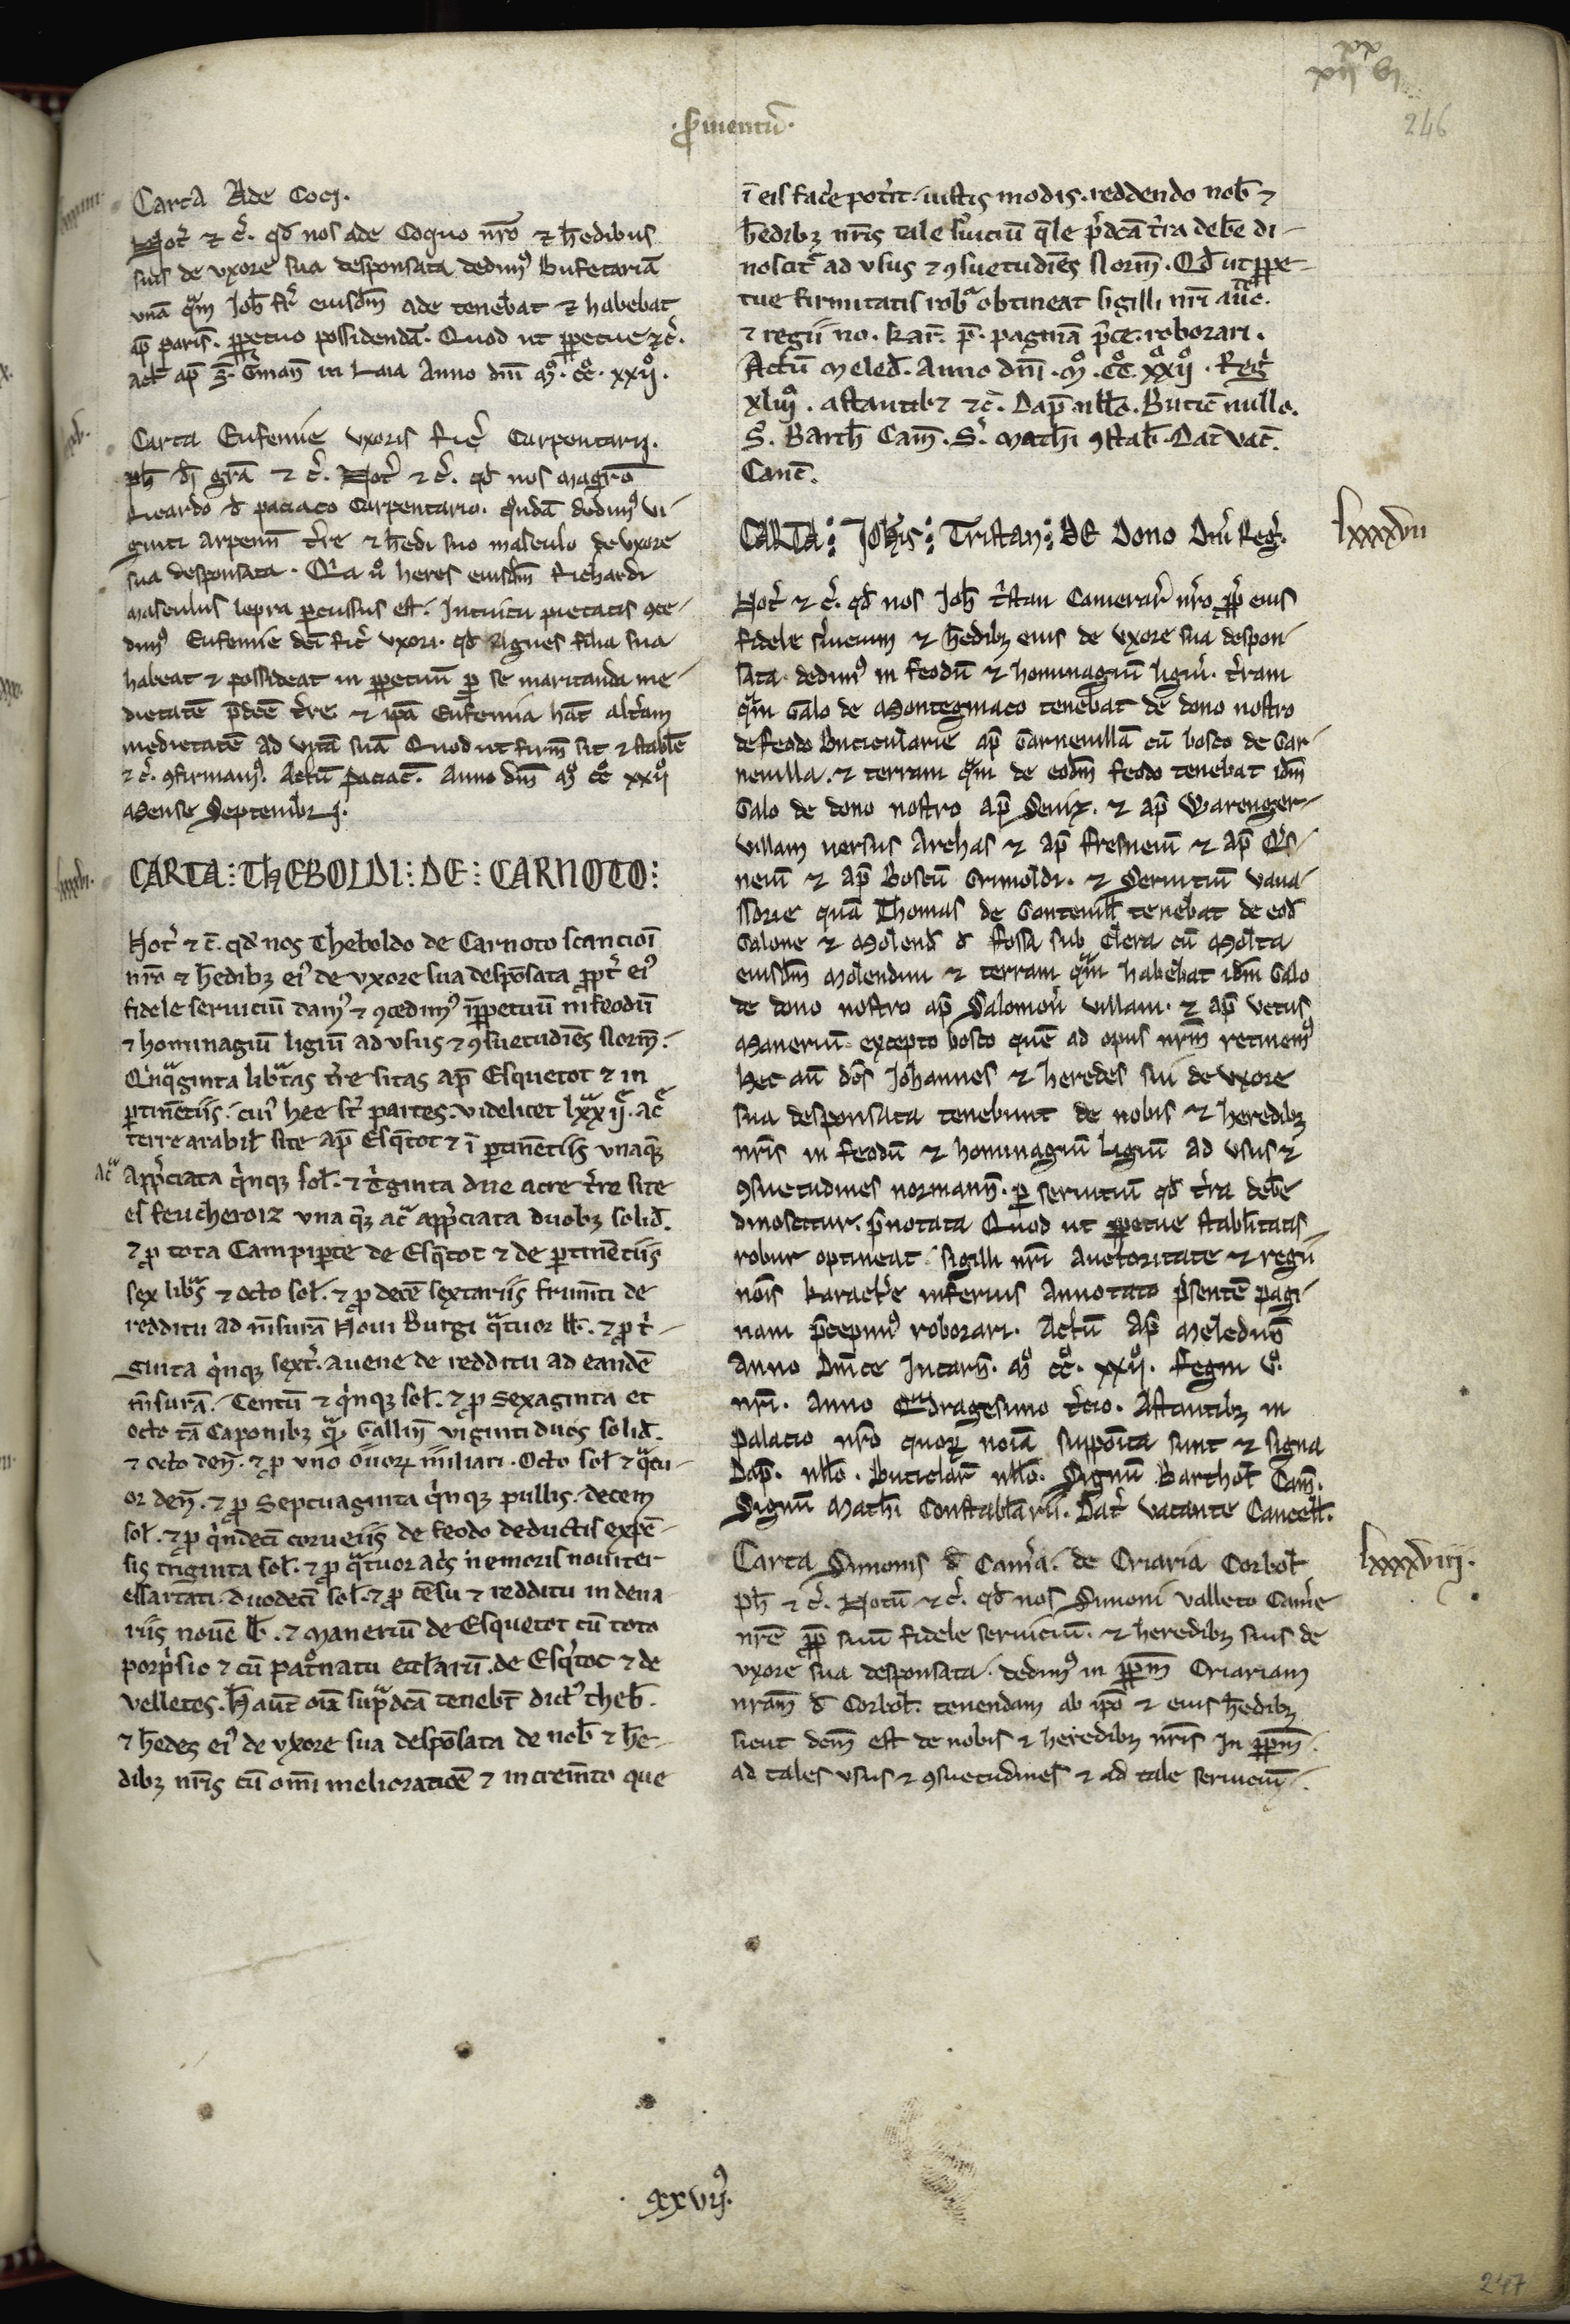 ·p̄mentū·
246
Carta Ade Cocj.
Not᷑ ⁊ c̃. qđ nos ade Coquo nr̃o ⁊ h̄edibus
suis de vxore sua desponsata dedimꝰ Bufetariā
unā qͣm Joh̄ fr̃ eiusdm̄ ade tenebat ⁊ habebat
ap̄ paris̄. ꝑpetuo possidendā. Quod ut ꝑpetue ⁊c̃.
Act̄ ap̄ S̄. Gm̃an̄ in Laia Anno dn̄i mͦ. ccͦ. xxijͦ.
Carta Eufemie vxoris Ric̃ Carpentarij.
ph̄ di̅ gr̄a ⁊ c̃. Not᷑ ⁊ c̃. qđ nos magr̄o
Ricardo đ paciaco Carpentario. qͦndā dedimꝰ vi-
ginti arpenn̄ t̃re ⁊ h̄edi suo masculo de vxore
sua desponsata. Qͥa uͦ heres eiusdm̄ Richardi
masculus lepra ꝑcussus est. Intuitu pietatis ꝯce-
dimꝰ Eufemie dc̄i Ric̃ vxori. qđ Agnes filia sua
habeat ⁊ possideat in ꝑpetuū ꝑ se maritanda me-
dietatē p̄dc̄e t̃re ⁊ ip̄a Eufemia hāt alt̃am
medietatē ad vitā suā Quod ut firm̄ sit ⁊ stabłe
⁊ c̃. ꝯfirmamꝰ. Actū paciac̄. Anno dn̄i mͦ ccͦ xxijͦ
Mense Septembrj.
CARTA: THEBOLDI: DE: CARNOTO:
Not᷑ ⁊ c̄. qđ nos Theboldo de Carnoto scancioī
nr̄o ⁊ h̄edibꝫ eiꝰ de vxore sua despōsata ꝓpt᷑ eiꝰ
fidele seruiciū damꝰ ⁊ ꝯcedimꝰ ī ꝑpetuū in feodū
⁊ hominagiū ligiū ad vsus ⁊ ꝯsuetudīes Norm̄.
Qͥnqͣginta libͣtas t̃re sitas ap̄ Esquetot ⁊ in
ꝑtinētiis. cuiꝰ hee st̃ partes. videlicet lxxͣijͤ. acͤ
terre arabił site ap̄ Esqͤtot ⁊ ī ꝑtinētiis vnaqꝫ
acͣ app̃ciata qͥnqꝫ soł. ⁊ tͥginta due acre t̃re site
es feucheroiz una qꝫ acͣ app̃ciata duobꝫ soliđ.
⁊ ꝓ tota Campiꝑte de Esqͤtot ⁊ de ꝑtinētiis
sex libͣs ⁊ octo soł. ⁊ ꝓ decē sextariis frum̄ti de
redditu ad m̄surā Noui Burgi qͣtuor łł. ⁊ ꝓ tͥ-
ginta qͥnqꝫ sext᷑. auene de redditu ad eandē
m̄surā. Centū ⁊ qͥnqꝫ soł. ⁊ ꝓ Sexaginta et
octo tā Caponibꝫ qͣ Gallin̄ viginti duos soliđ.
⁊ octo den̄. ⁊ ꝓ uno ouoꝝ miliari. Octo soł ⁊ qͣtu-
or den̄. ⁊ ꝓ Septuaginta qͥnqꝫ pullis. decem
soł. ⁊ ꝓ qͥndecī corueiis de feodo deductis expē-
sis triginta soł. ⁊ ꝓ qͣtuor ac̃s nemoris nouiter
essartati. duodecī soł. ⁊ ꝓ cēsu ⁊ redditu in dena-
riis nouē łł. ⁊ maneriū de Esquetot cū toto
porpͥsio ⁊ cū patͦnatu ecłiarū de Esqͥtot ⁊ de
velletes. H̄ aūt oīa supͣdcā tenebt̄ dictꝰ theb̄.
⁊ h̄edes eiꝰ de vxore sua despōsata de nob̄ ⁊ he-
dibꝫ nr̄is cū om̄i melioratiōe ⁊ increm̄to que
ī eis fac̃e pot̃it. iustis modis. reddendo nob̄ ⁊
h̄edibꝫ nr̄is tale s̃uiciū qͣle p̃dcā t̃ra debe di-
noscitᷣ ad vsus ⁊ ꝯsuetudīes Norm̄. Qđ ut ꝑpe-
tue firmitatis robᷣ obtineat sigilli nr̄i auc̄te.
⁊ regii no. kar̄. p̄. paginā p̃ce. roborari.
Actū Meleđ. Anno dn̄i. mͦ. ccͦ. xxijͦ. Reg᷑
xliijͦ. astantibꝫ ⁊c̃. Dap̄ nłło. Butic̄ nullo.
S̃. Barth̄ Cam̄. S̃. Mathī ꝯstab̄. Dat̄ vac̄.
Canc̄.
CARTA: JOHIS: Tristan: DE Dono Dn̄i Reg᷑.
lxxxxvii
Not᷑ ⁊ c̃. qđ nos Joh̄ t̃stan Camerar̄ nr̄o ꝓp̄ eius
fidele s̃uicium ⁊ h̄edibꝫ eius de vxore sua despon-
sata. dedimꝰ in feodū ⁊ hominagiū ligiū. t̃ram
qͣm Galo de Montegniaco tenebat de dono nostro
de feodo Buticularie ap̄ Garneuillā cū bosco de Gar-
neuilla. ⁊ terram qͣm de eodm̄ feodo tenebat idm̄
Galo de dono nostro ap̄ Seuix. ⁊ ap̄ Warenger-
villam uersus Archas ⁊ ap̄ fresneiū ⁊ ap̄ Qͥs-
neiū ⁊ ap̄ Boscū Grimoldi. ⁊ Seruitiū Vaua-
ssorie quā Thomas de Gonteuiłł tenebat de eođ
Galone ⁊ Molenđ đ fossa sub Clera cū Molta
eiusdm̄ Molendini ⁊ terram qͣm habebat idm̄ Galo
de dono nostro ap̄ Salomoñ villam. ⁊ ap̄ Vetus
Maneriū. excepto bosco quē ad opus nr̄m retinemꝰ
Hec aū dc̄s Johannes ⁊ heredes sui de vxore
sua desponsata tenebunt de nobis ⁊ heredibꝫ
nr̄is in feodū ⁊ hominagiū ligiū ad vsus ⁊
ꝯsuetudines normann̄. ꝑ seruitiū qđ t̃ra debe
dinoscitur. p̃notata Quod ut ꝑpetue stabłitatis
robur optineat. sigilli nr̄i auctoritate ⁊ regii
noīs karact̃e inferius annotato p̃sentē pagi-
nam p̃cepimꝰ roborari. Actū ap̄ Meledunū
Anno Dn̄ice Incarn̄. mͦ ccͦ. xxijͦ. Regni vͦ.
nr̄i. Anno Qͣdragesimo t̃cio. Astantibꝫ in
palacio nr̄o quoꝝ noīa supposīta sunt ⁊ signa
Dap̄. nłło. Buticlar̄ nłło. Signū Barthoł Cam̄.
Signū Mathī Constabłarii. Dat᷑ Vacante Cancełł.
Carta Simonis đ Cam̃a. de Criaria Corboł
lxxxxviij.
ph̄ ⁊ c̃. Notū ⁊c̃. qđ nos Simoni valleto Cam̃e
nr̄e ꝓp̄ suū fidele seruiciū. ⁊ heredibꝫ suis de
vxore sua desponsata. dedimꝰ in ꝑpm̄ Criariam
nr̄am đ Corboł. tenendam ab ip̄o ⁊ eius h̄edibꝫ
sicut dc̄m est de nobis ⁊ heredibꝫ nr̄is In ꝑpm̄.
ad tales vsus ⁊ ꝯsuetudines ⁊ ad tale seruiciū.
xxvijꝰ.
247